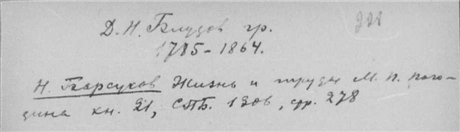 Д. Н. Блудов гр.
1785-1864.
Н. Барсуков Жизнь и труды М. П. Пого-
дина кн. 21, СПБ. 1906, стр. 278